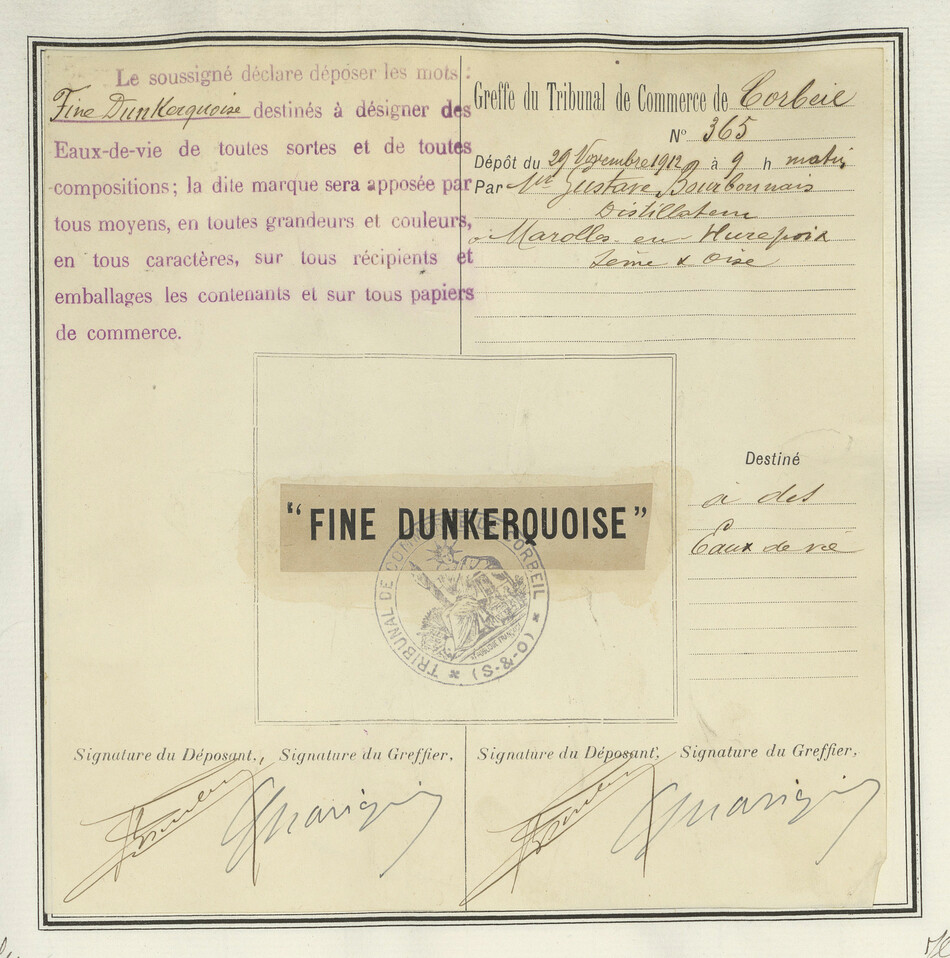 Le soussigné déclare déposer les mots :
Fine Dunkerquoise destinés à désigner des
Eaux-de-vie de toutes sortes et de toutes
compositions; la dite marque sera apposée par
tous moyens, en toutes grandeurs et couleurs,
en tous caractères, sur tous récipients et
emballages les contenants et sur tous papiers
de commerce.
Greffe du Tribunal de Commerce de Corbeil
N° 365
Dépôt du 29 Novembre 1912 à 9 h matin
Par Mr Gustave Bourbonnais
Distillateur
à Marolles en Hurepoix
Seine & Oise
"FINE DUNKERQUOISE"
TRIBUNAL DE COMMERCE DE CORBEIL
(S-&-O)
Destiné
à des
Eaux de vie
Signature du Déposant, Signature du Greffier,
Signature du Déposant, Signature du Greffier,